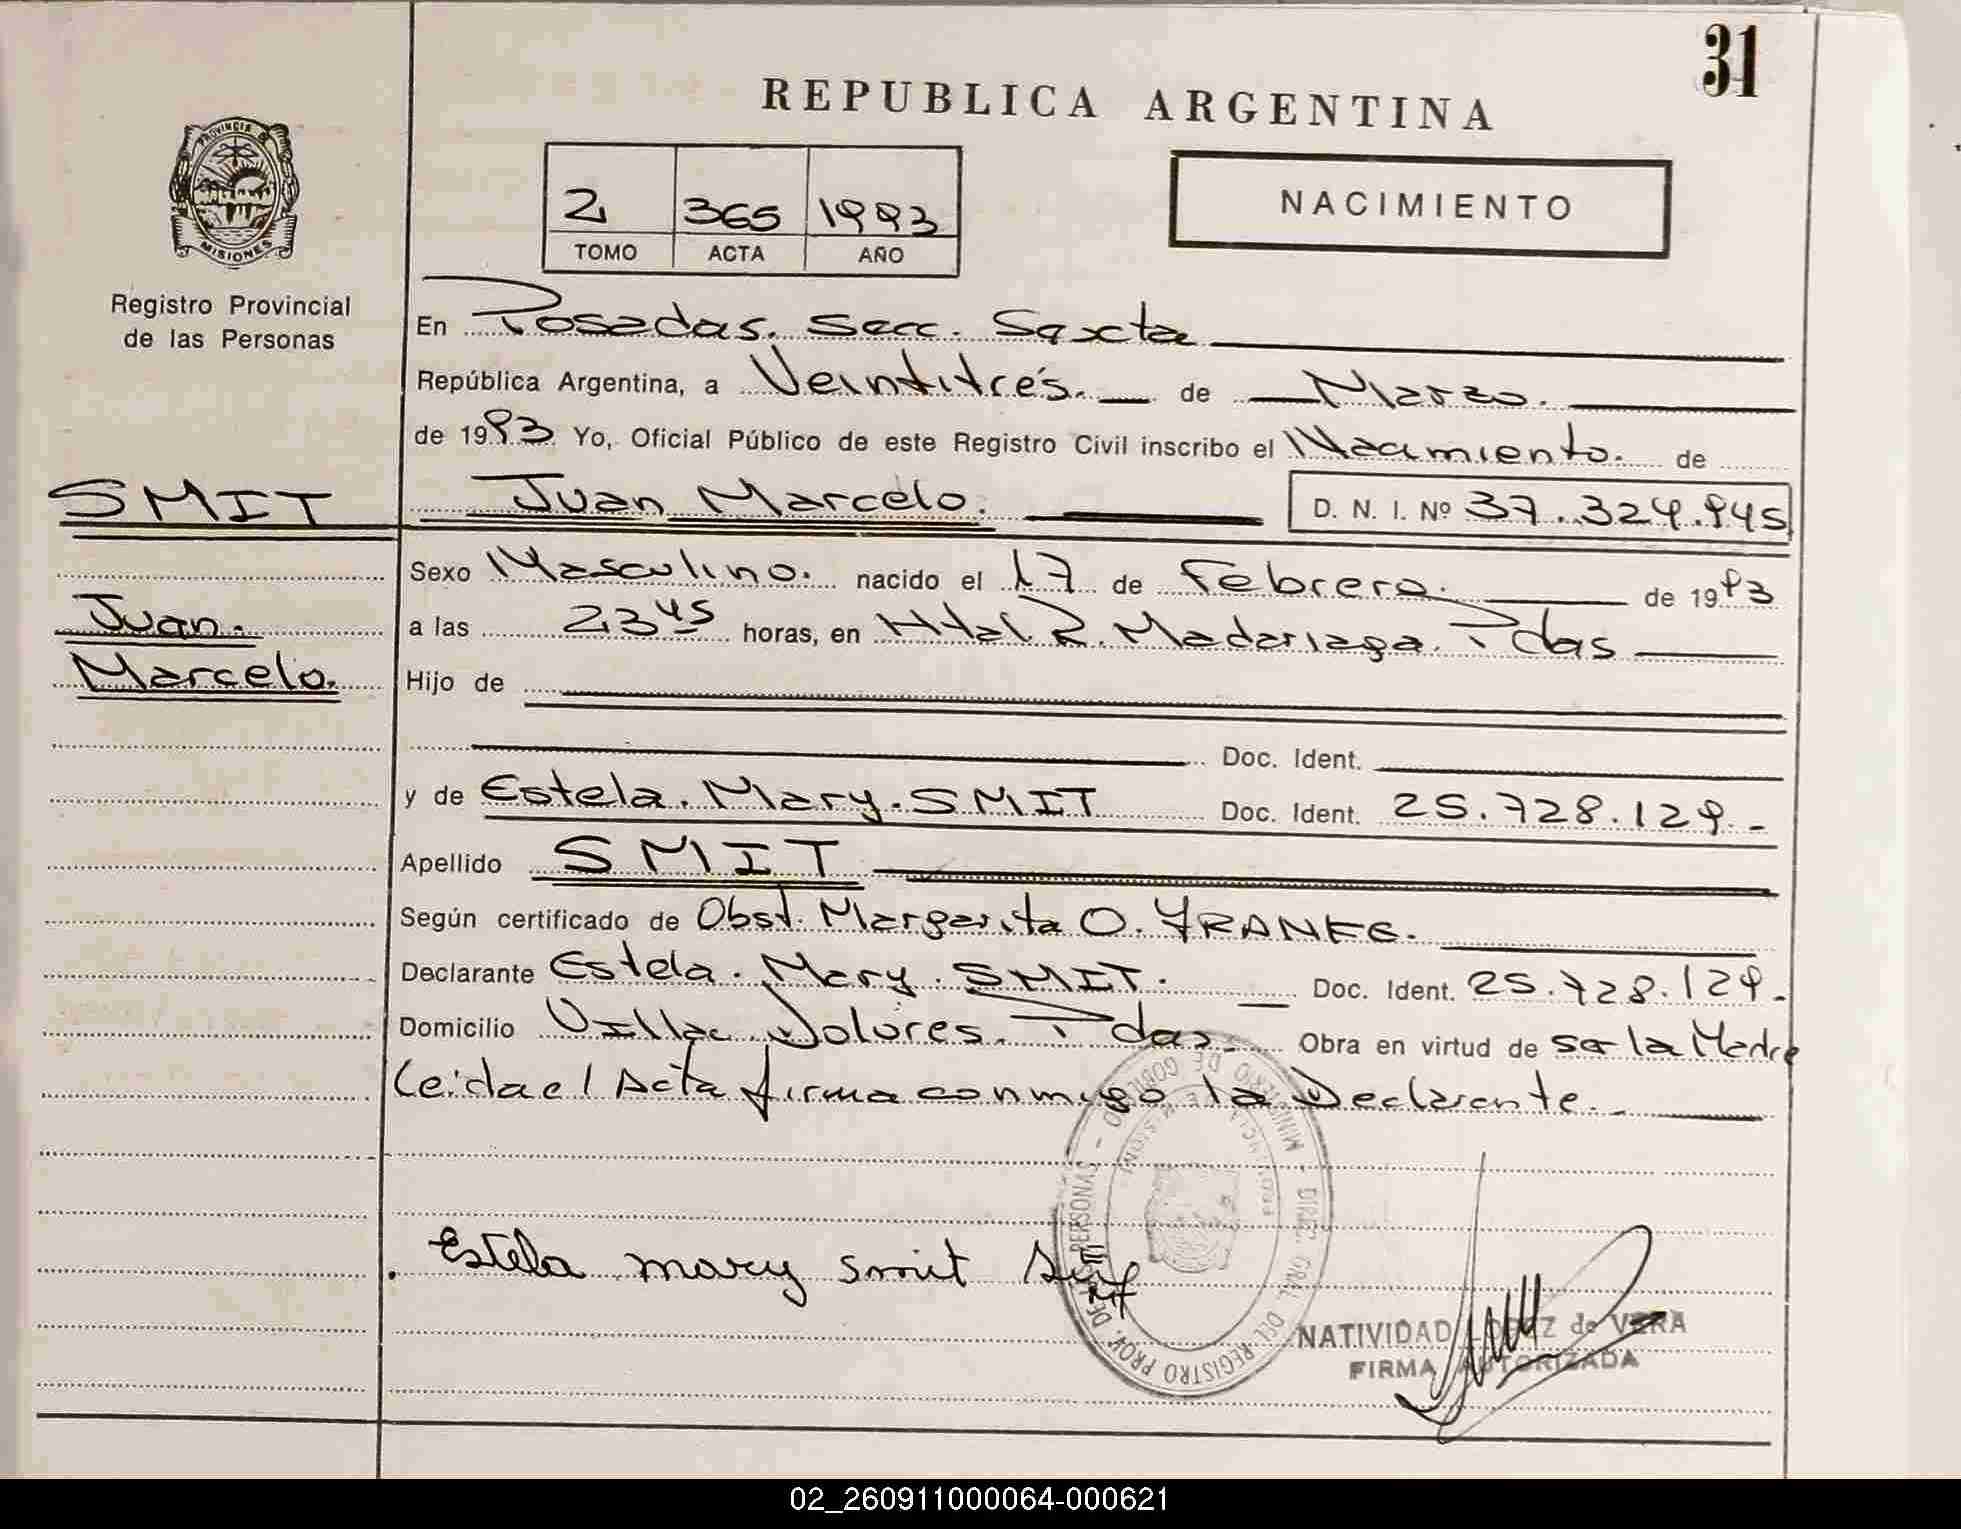 31
REPUBLICA ARGENTINA
PROVINCIA DE
MISIONES
Registro Provincial
de las Personas
2 365 1993
TOMO ACTA AÑO
NACIMIENTO
En Posadas. Secc. Sexta
República Argentina, a Veintitrés. de Marzo.
de 1993 Yo, Oficial Público de este Registro Civil inscribo el Nacimiento. de
SMIT
Juan Marcelo. D. N. I. Nº 37.324.945
Sexo Masculino. nacido el 17 de Febrero. de 1993
Juan.
Marcelo.
a las 23 45 horas, en Htal R. Madariaga. Pdas
Hijo de
Doc. Ident.
y de Estela. Mary. SMIT Doc. Ident. 25.728.129.-
Apellido SMIT
Según certificado de Obst. Margarita O. FRANKE.
Declarante Estela. Mary. SMIT. Doc. Ident. 25.728.129.-
Domicilio Villa Dolores. Pdas. Obra en virtud de ser la Madre
Leida el Acta firma conmigo la Declarante.
MINISTERIO DE GOBIERNO - DIREC. GRAL. DEL REGISTRO PROV. DE LAS PERSONAS -
Estela mary smit
NATIVIDAD de VERA
FIRMA AUTORIZADA
02_260911000064-000621